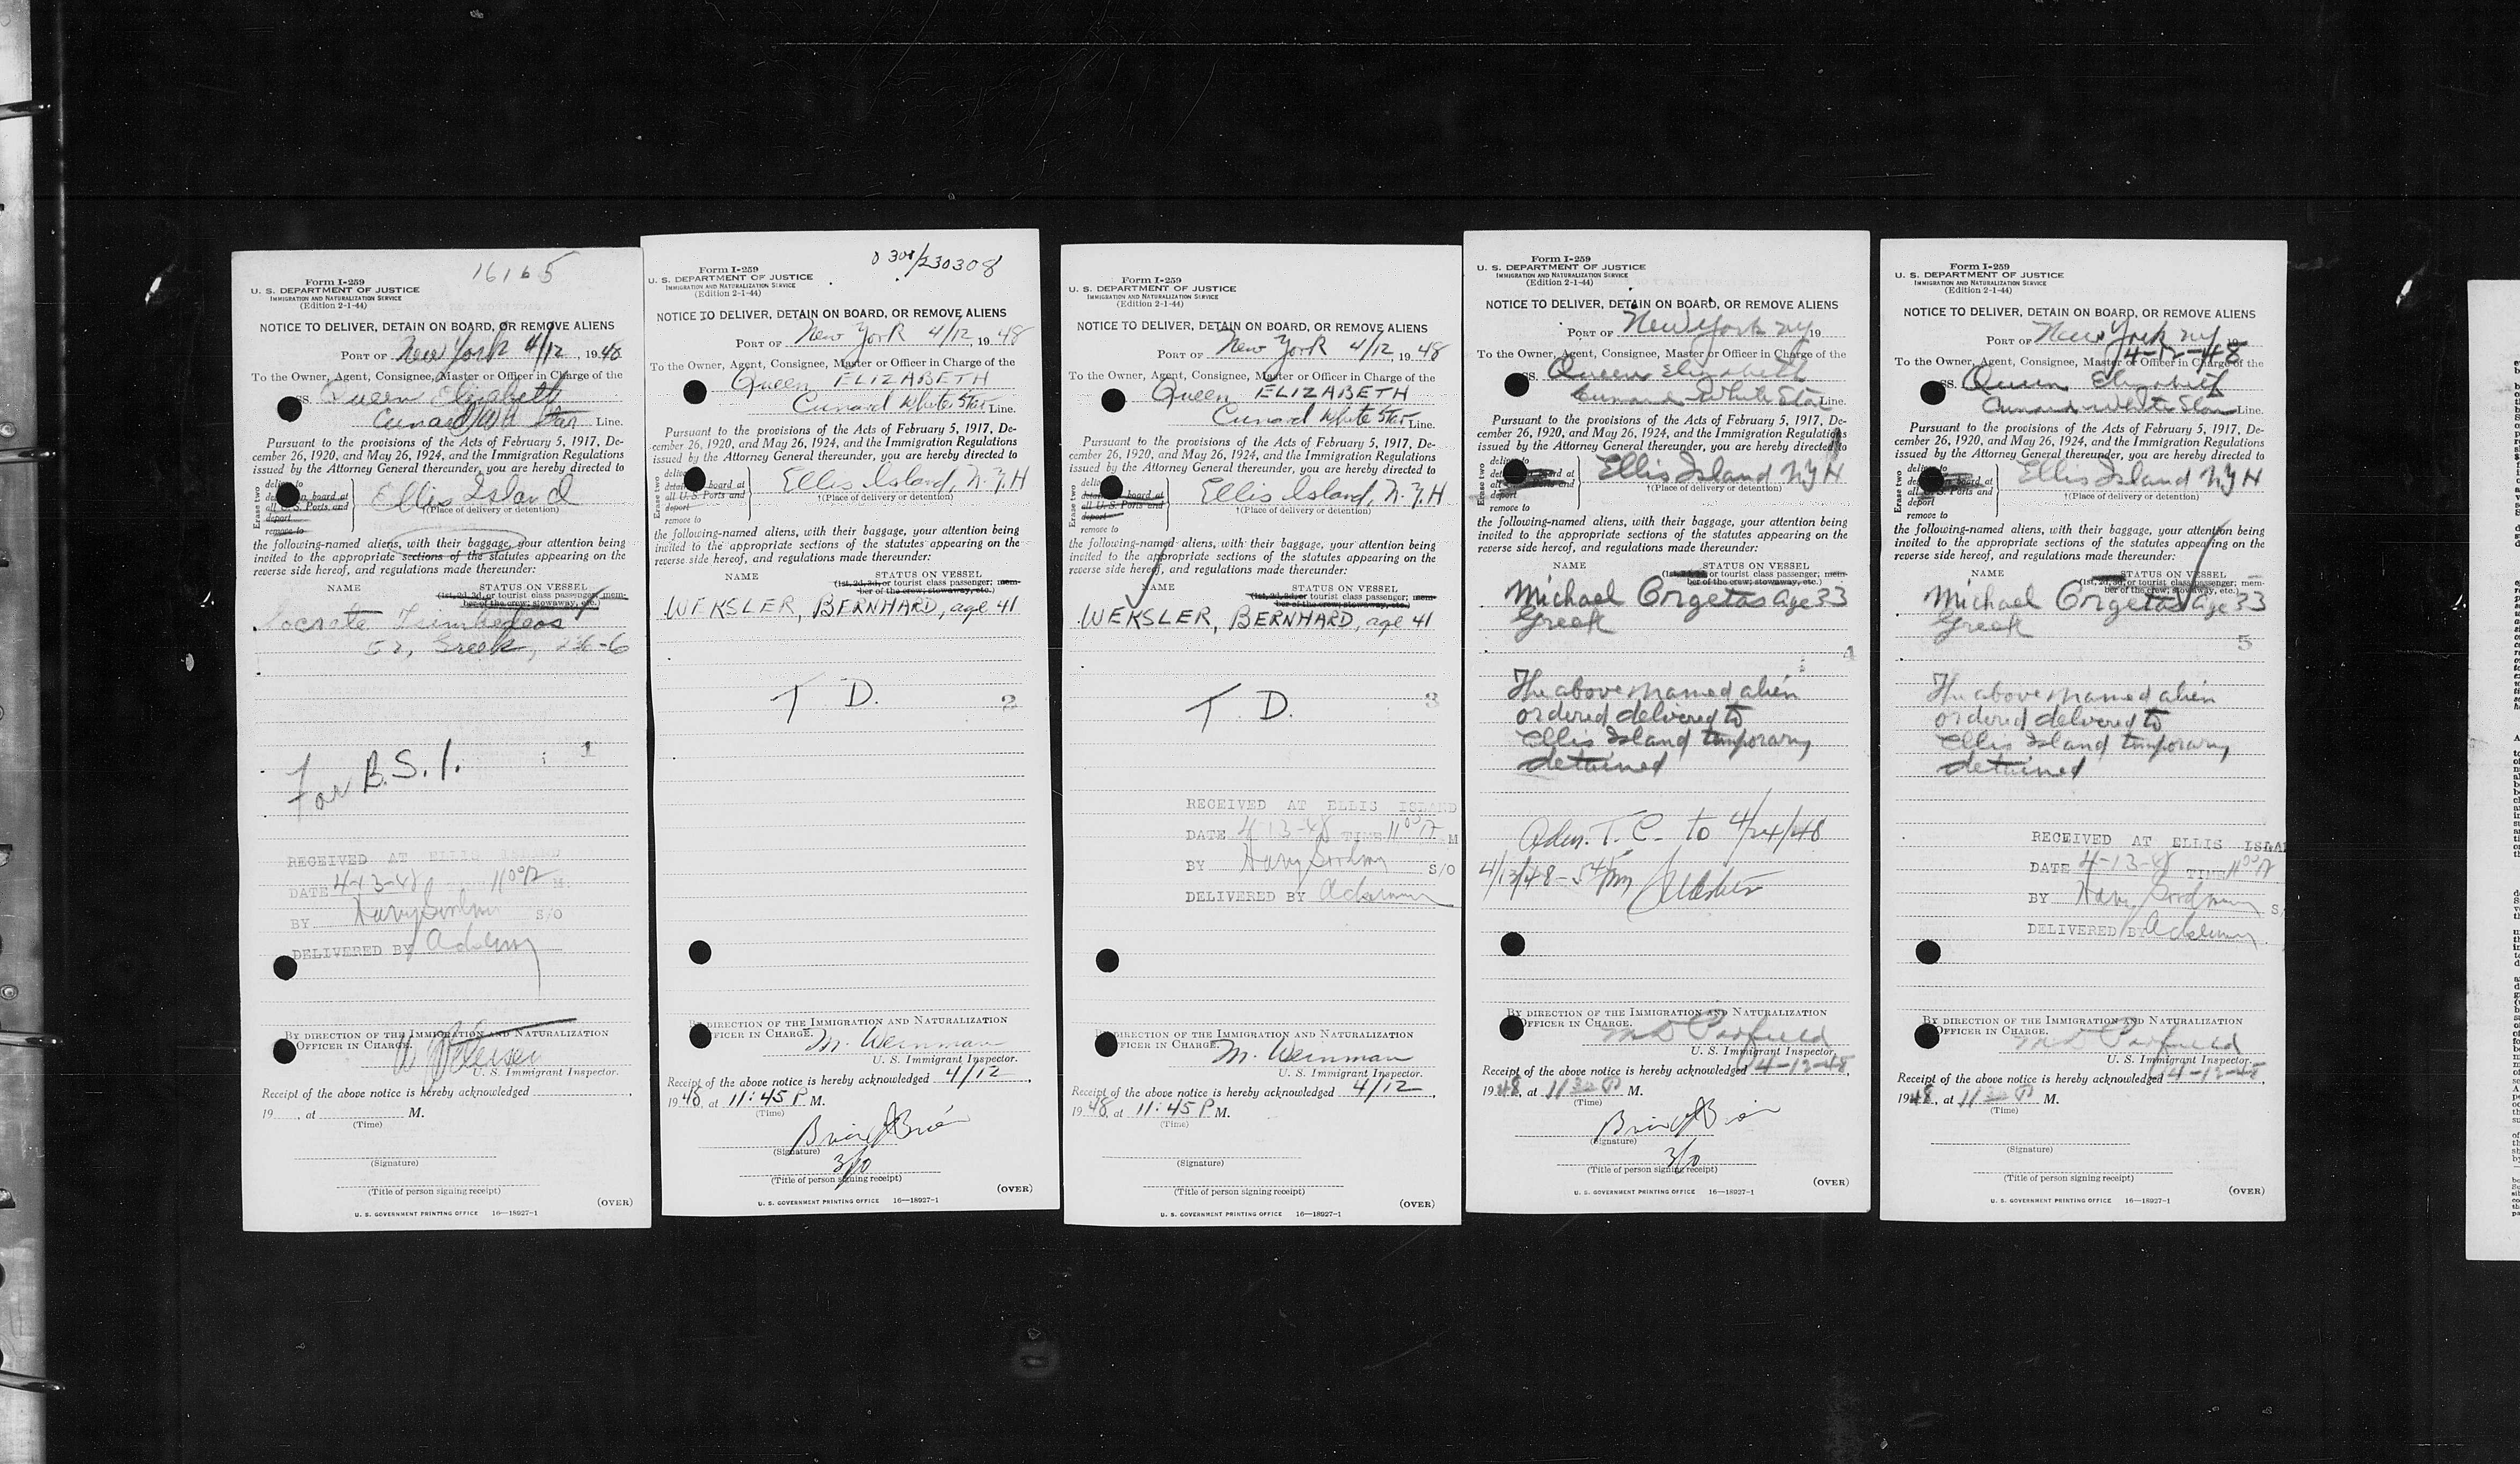 16165
Form I-259
U. S. DEPARTMENT OF JUSTICE
IMMIGRATION AND NATURALIZATION SERVICE
(Edition 2-1-44)
NOTICE TO DELIVER, DETAIN ON BOARD, OR REMOVE ALIENS
PORT OF New York 4/12, 1948
To the Owner, Agent, Consignee, Master or Officer in Charge of the
SS. Queen Elizabeth
Cunard Wh Star Line.
Pursuant to the provisions of the Acts of February 5, 1917, De-
cember 26, 1920, and May 26, 1924, and the Immigration Regulations
issued by the Attorney General thereunder, you are hereby directed to
Erase two
deliver to
on board at
all U. S. Ports and
deport
remove to
Ellis Island
†(Place of delivery or detention)
the following-named aliens, with their baggage, your attention being
invited to the appropriate sections of the statutes appearing on the
reverse side hereof, and regulations made thereunder:
NAME STATUS ON VESSEL
(1st, 2d, 3d, or tourist class passenger; mem-
ber of the crew; stowaway, etc.)
Socrate
52, Greek, 236-6
1
For B.S.I.
RECEIVED AT ELLIS ISLAND
DATE 4-13-48 1100 M
BY S/O
DELIVERED BY
BY DIRECTION OF THE IMMIGRATION AND NATURALIZATION
OFFICER IN CHARGE.
U. S. Immigrant Inspector.
Receipt of the above notice is hereby acknowledged
19 , at M.
(Time)
(Signature)
(Title of person signing receipt)
(OVER)
U. S. GOVERNMENT PRINTING OFFICE 16—18927-1
0 300/230308
Form I-259
U. S. DEPARTMENT OF JUSTICE
IMMIGRATION AND NATURALIZATION SERVICE
(Edition 2-1-44)
NOTICE TO DELIVER, DETAIN ON BOARD, OR REMOVE ALIENS
PORT OF New York 4/12, 1948
To the Owner, Agent, Consignee, Master or Officer in Charge of the
Queen ELIZABETH
Cunard White Star Line.
Pursuant to the provisions of the Acts of February 5, 1917, De-
cember 26, 1920, and May 26, 1924, and the Immigration Regulations
issued by the Attorney General thereunder, you are hereby directed to
Erase two
board at
all U. S. Ports and
deport
remove to
Ellis Island, N.Y.H
†(Place of delivery or detention)
the following-named aliens, with their baggage, your attention being
invited to the appropriate sections of the statutes appearing on the
reverse side hereof, and regulations made thereunder:
NAME STATUS ON VESSEL
(1st, 2d, 3d, or tourist class passenger; mem-
ber of the crew; stowaway, etc.)
WEKSLER, BERNHARD, age 41
T. D.
2
BY DIRECTION OF THE IMMIGRATION AND NATURALIZATION
OFFICER IN CHARGE.
M. Weinman
U. S. Immigrant Inspector.
Receipt of the above notice is hereby acknowledged 4/12,
1948, at 11:45 P M.
(Time)
(Signature)
3/O
(Title of person signing receipt)
(OVER)
U. S. GOVERNMENT PRINTING OFFICE 16—18927-1
Form I-259
U. S. DEPARTMENT OF JUSTICE
IMMIGRATION AND NATURALIZATION SERVICE
(Edition 2-1-44)
NOTICE TO DELIVER, DETAIN ON BOARD, OR REMOVE ALIENS
PORT OF New York 4/12, 1948
To the Owner, Agent, Consignee, Master or Officer in Charge of the
Queen ELIZABETH
Cunard White Star Line.
Pursuant to the provisions of the Acts of February 5, 1917, De-
cember 26, 1920, and May 26, 1924, and the Immigration Regulations
issued by the Attorney General thereunder, you are hereby directed to
Erase two
board at
all U. S. Ports and
deport
remove to
Ellis Island, N.Y.H
†(Place of delivery or detention)
the following-named aliens, with their baggage, your attention being
invited to the appropriate sections of the statutes appearing on the
reverse side hereof, and regulations made thereunder:
NAME STATUS ON VESSEL
(1st, 2d, 3d, or tourist class passenger; mem-
ber of the crew; stowaway, etc.)
WEKSLER, BERNHARD, age 41
T. D.
3
RECEIVED AT ELLIS ISLAND
DATE 4-13-48 TIME 1100 M
BY S/O
DELIVERED BY
BY DIRECTION OF THE IMMIGRATION AND NATURALIZATION
OFFICER IN CHARGE.
M. Weinman
U. S. Immigrant Inspector.
Receipt of the above notice is hereby acknowledged 4/12,
1948, at 11:45 P M.
(Time)
(Signature)
(Title of person signing receipt)
(OVER)
U. S. GOVERNMENT PRINTING OFFICE 16—18927-1
Form I-259
U. S. DEPARTMENT OF JUSTICE
IMMIGRATION AND NATURALIZATION SERVICE
(Edition 2-1-44)
NOTICE TO DELIVER, DETAIN ON BOARD, OR REMOVE ALIENS
PORT OF New York NY 19
To the Owner, Agent, Consignee, Master or Officer in Charge of the
SS. Queen Elizabeth
Cunard White Star Line.
Pursuant to the provisions of the Acts of February 5, 1917, De-
cember 26, 1920, and May 26, 1924, and the Immigration Regulations
issued by the Attorney General thereunder, you are hereby directed to
Erase two
deliver to
board at
all U. S. Ports and
deport
remove to
Ellis Island NYH
†(Place of delivery or detention)
the following-named aliens, with their baggage, your attention being
invited to the appropriate sections of the statutes appearing on the
reverse side hereof, and regulations made thereunder:
NAME STATUS ON VESSEL
(1st, 2d, 3d, or tourist class passenger; mem-
ber of the crew; stowaway, etc.)
Michael Orgetas age 33
Greek
4
The above named alien
ordered delivered to
Ellis Island temporary
detained
Adm. T. C. to 4/24/48
4/13/48 - 545 PM
BY DIRECTION OF THE IMMIGRATION AND NATURALIZATION
OFFICER IN CHARGE.
U. S. Immigrant Inspector.
Receipt of the above notice is hereby acknowledged 4-12-48,
1948, at 11 30 P M.
(Time)
(Signature)
3/O
(Title of person signing receipt)
(OVER)
U. S. GOVERNMENT PRINTING OFFICE 16—18927-1
Form I-259
U. S. DEPARTMENT OF JUSTICE
IMMIGRATION AND NATURALIZATION SERVICE
(Edition 2-1-44)
NOTICE TO DELIVER, DETAIN ON BOARD, OR REMOVE ALIENS
PORT OF New York NY 19
4-12-48
To the Owner, Agent, Consignee, Master or Officer in Charge of the
SS. Queen Elizabeth
Cunard White Star Line.
Pursuant to the provisions of the Acts of February 5, 1917, De-
cember 26, 1920, and May 26, 1924, and the Immigration Regulations
issued by the Attorney General thereunder, you are hereby directed to
Erase two
deliver to
on board at
all U. S. Ports and
deport
remove to
Ellis Island NYH
†(Place of delivery or detention)
the following-named aliens, with their baggage, your attention being
invited to the appropriate sections of the statutes appearing on the
reverse side hereof, and regulations made thereunder:
NAME STATUS ON VESSEL
(1st, 2d, 3d, or tourist class passenger; mem-
ber of the crew; stowaway, etc.)
Michael Orgetas age 33
Greek
5
The above named alien
ordered delivered to
Ellis Island temporary
detained
RECEIVED AT ELLIS ISLA
DATE 4-13-48 TIME 1100
BY S/
DELIVERED BY
BY DIRECTION OF THE IMMIGRATION AND NATURALIZATION
OFFICER IN CHARGE.
U. S. Immigrant Inspector.
Receipt of the above notice is hereby acknowledged 4-12-48,
1948, at 11 30 P M.
(Time)
(Signature)
(Title of person signing receipt)
(OVER)
U. S. GOVERNMENT PRINTING OFFICE 16—18927-1